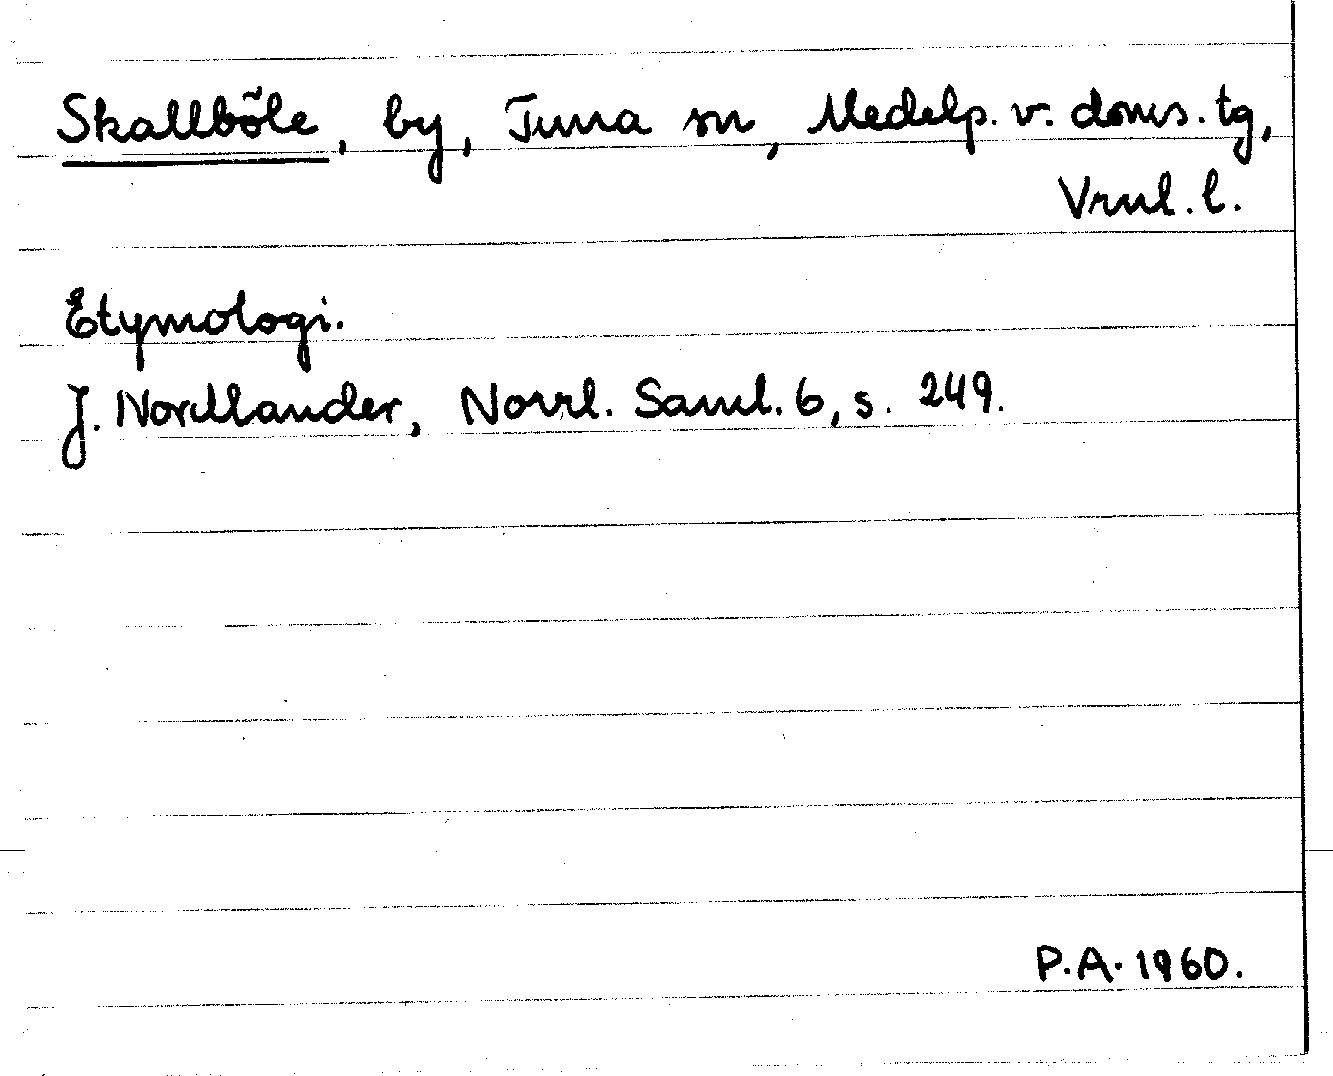 Skallböle, by, Tuna sn, Medelp. v. doms. tg,
Vrnl. l.
Etymologi.
J. Nordlander, Norrl. Saml. 6, s. 249.
P.A. 1960.